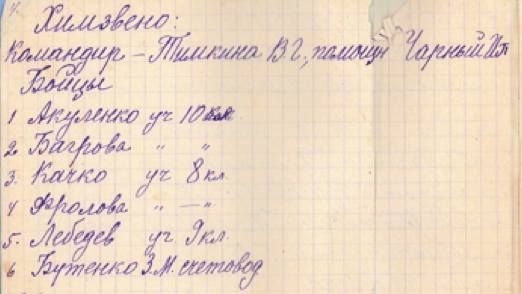 Химзвено:
Командир – Тимкина В Г, помощн Чарный И П
Бойцы
1 Акуленко уч 10 кл
2 Багрова " "
3. Качко уч 8 кл.
4 Фролова " — "
5. Лебедев уч 9 кл.
6 Бутенко З.М. счетовод